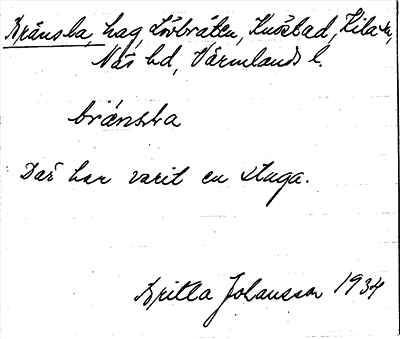 Bränsla, hag, Lövbråten, Knöstad, Kila sn,
Näs hd, Värmlands l.
bränsla
Där har varit en stuga.
Britta Johansson 1934